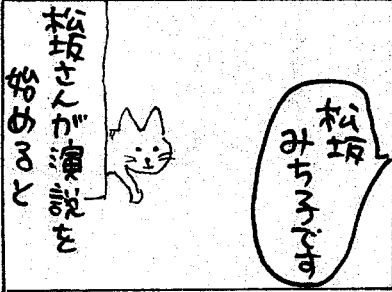 松坂
みち子です
松坂さんが演説を
始めると